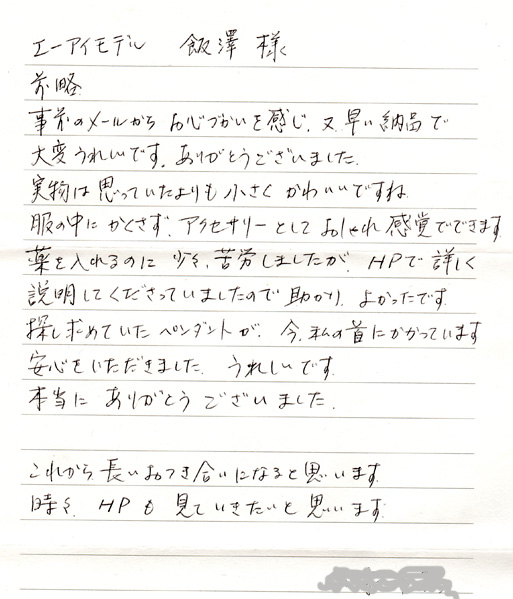 エーアイモデル 飯澤 様
前略
事前のメールから お心づかいを感じ、又、早い納品で
大変うれしいです。ありがとうございました。
実物は思っていたよりも小さく かわいいですね
服の中にかくさず、アクセサリーとして おしゃれ感覚でできます
薬を入れるのに 少々、苦労しましたが、HPで詳しく
説明してくださっていましたので助かり、よかったです。
探し求めていたペンダントが、今、私の首にかかっています
安心をいただきました。うれしいです。
本当に ありがとう ございました。
これから、長いおつき合いになると思います。
時々、HPも見ていきたいと思います。